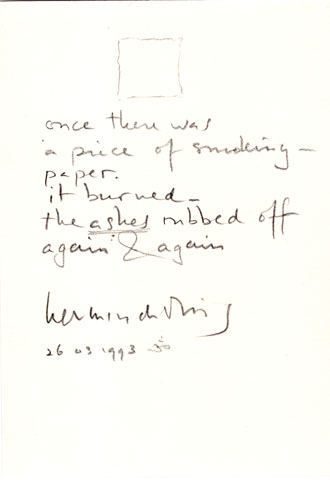 once there was
a piece of smoking-
paper.
it burned-
the ashes rubbed off
again & again
herman de vries
26 03 1993